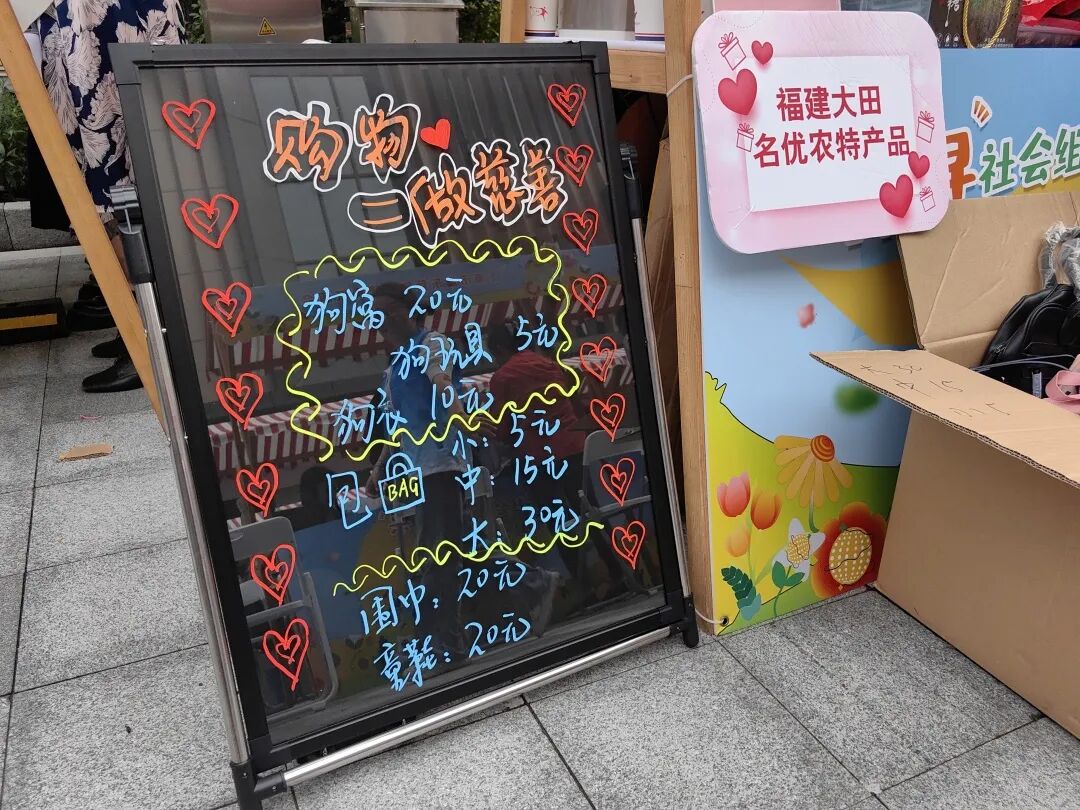 购物
=做慈善
狗窝 20元
狗玩具 5元
狗衣 10元
包 BAG 小: 5元
中: 15元
大: 30元
围巾: 20元
童鞋: 20元
福建大田
名优农特产品
社会组